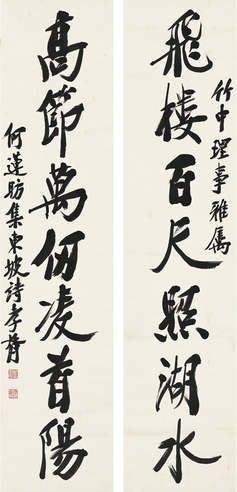 飛樓百尺照湖水
竹中理事雅属
高節萬仞凌首陽
何蓮昉集東坡詩孝胥